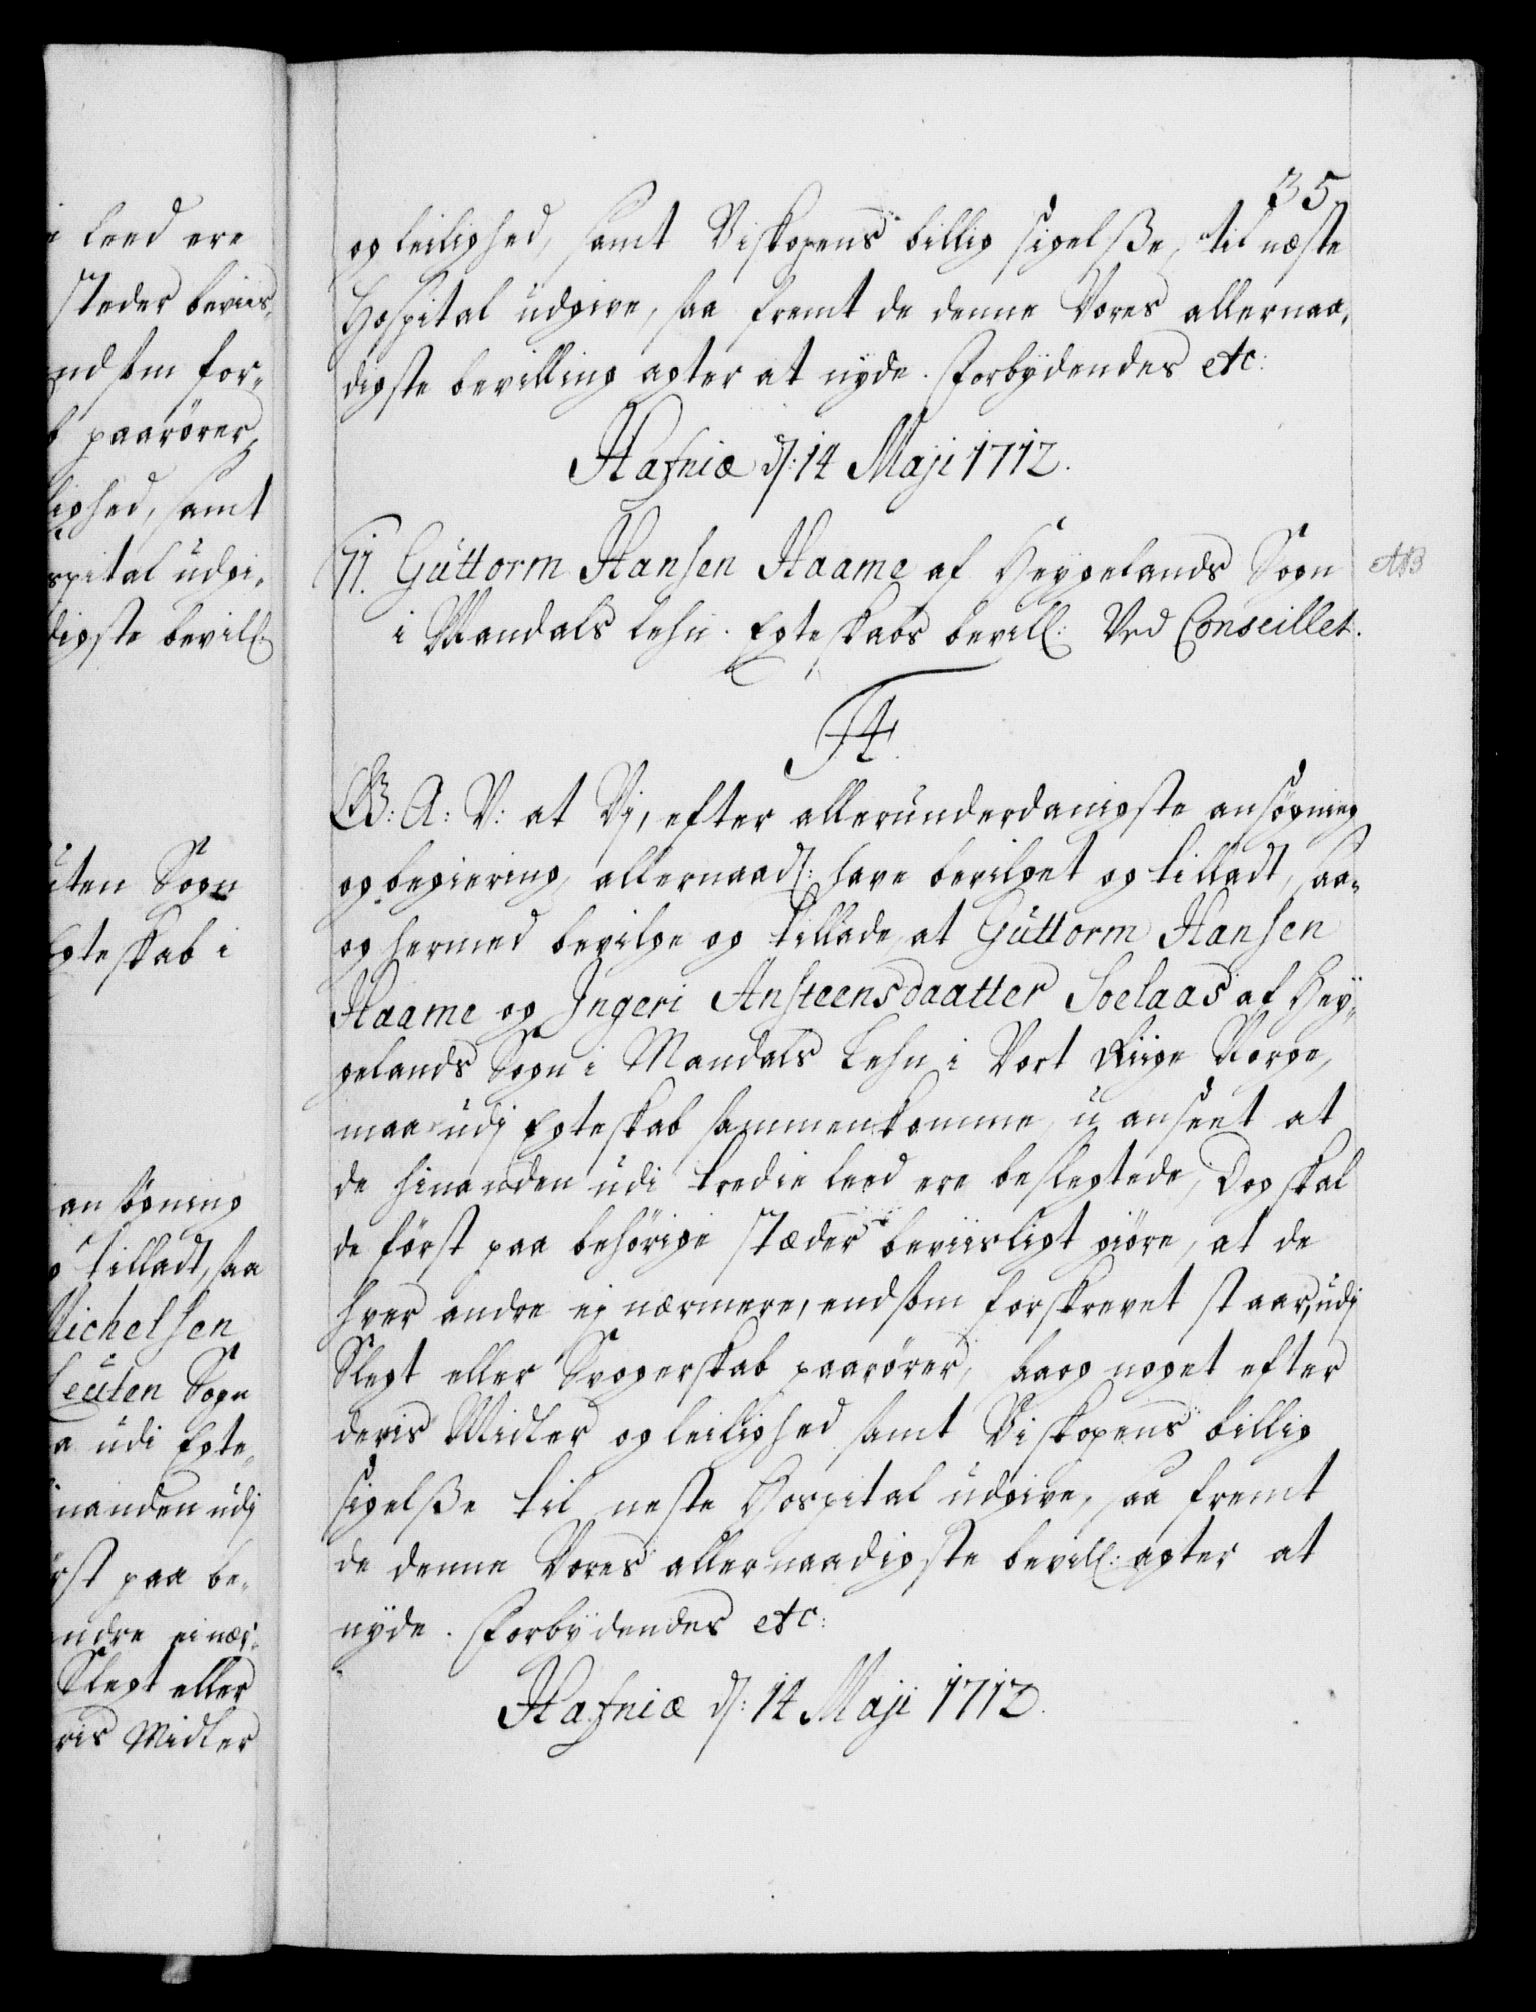 i leed ere
steder beviis,
endskjøn for-
b paarører,
lighed, samt
spital udgi,
digste bevill:
uten Sogn
Egteskab i
ansøgning
og tilladt, saa
Michelsen
Leuten Sogn
a udi Egte,
hinanden udj
først paa be,
andre ei nær,
Slegt eller
ris Midler
35
og leilighed, samt Biskopens billig sigelsße, til næste
Hospital udgive, saa fremt de denne Vores allernaa,
digste bevilling agter at nyde. Forbydendes etc:
Hafniæ d: 14 Maji 1712.
11. Guttorm Hansen Haame af Heyyelands Sogn
i Mandals Lehn. Egteskabs bevill: Ved Conseillet.
NB
F4.
G: A: V: at Vj, efter allerunderdanigste ansøgning
og begiering, allernaad: have bevilget og tilladt, saa-
og hermed bevilge og tillade, at Guttorm Hansen
Haame og Jngeri Ansteensdaatter Soelaas af Hey,
gelands Sogn i Mandals Lehn i Vort Riige Norge,
maa udj Egteskab sammenkomme, u anseet at
de hinanden udi tredie leed ere beslegtede, Dog skal
de først paa behørige stæder beviisligt giøre, at de
hver andre ej nærmere, endsom forskrevet staar, udj
Slegt eller Svogerskab paarører, saa og noget efter
deris Midler og leilighed samt Biskopens billig
sigelsße til neste Hospital udgive, saa fremt
de denne Vores allernaadigste bevill: agter at
nyde. Forbydendes etc:
Hafniæ d: 14 Maji 1712.